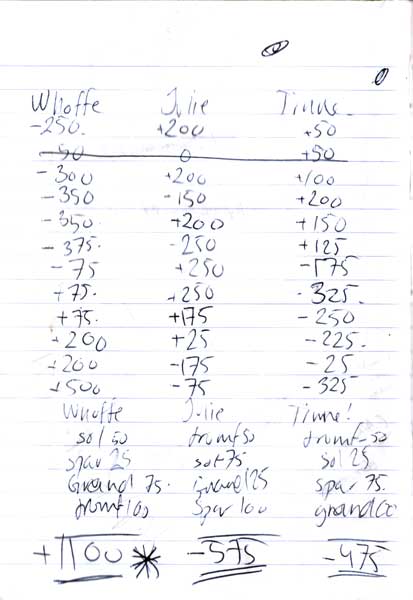 Whoffe Julie Tinne
-250. +200 +50
-50 0 +50
-300 +200 +100
-350 -150 +200
-350. +200 +150
-375. -250 +125
-75 +250 -175
+75. +250 -325.
+75. +175 -250
+200 +25 -225.
+200 -175 -25
+500 -75 -325
Whoffe Julie Tinne!
sol 50 trumf 50 trumf-50
spar 25 sol 75 sol 25
Grand 75. Grand 125 spar 75.
trumf 100 Spar 100 grand 00
+1100 * -575 -475